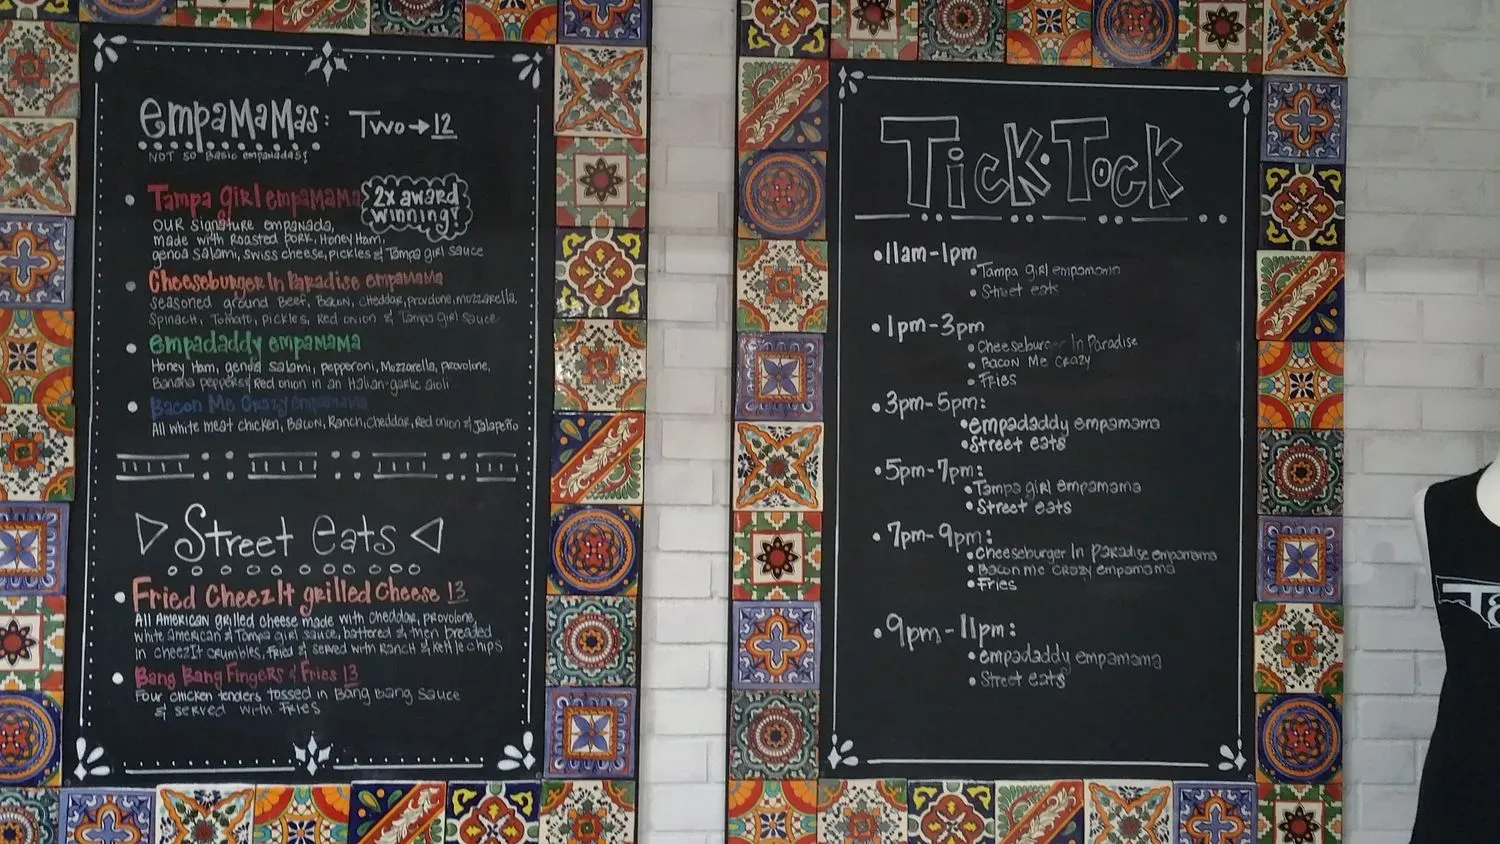 empaMaMas: Two→12
NOT SO Basic empanadas!
• Tampa girl empaMAMA
2x award
winning!
OUR Signature empanada,
made with Roasted PORK, Honey Ham,
genoa Salami, swiss cheese, pickles & Tampa girl sauce
• Cheeseburger In Paradise empamama
Seasoned ground Beef, Bacon, cheddar, provolone, mozzarella,
Spinach, Tomato, pickles, Red onion & Tampa girl sauce
• empadaddy empaMAMA
Honey Ham, genoa Salami, pepperoni, Mozzarella, provolone,
Banana peppers & Red onion in an Italian-garlic aioli
• Bacon Me Crazy empamama
All white meat chicken, Bacon, Ranch, cheddar, Red onion & Jalapeño
Street eats
• Fried CheezIt grilled Cheese 13
All AMERICAN grilled cheese made with cheddar, provolone,
white American & Tampa girl sauce, battered & then breaded
in cheezIt crumbles, fried & served with Ranch & kettle chips
• Bang Bang Fingers & Fries 13
Four chicken tenders tossed in Bang Bang sauce
& served with Fries
Tick·Tock
• 11am-1pm
• Tampa girl empamama
• Street eats
• 1pm-3pm
• Cheeseburger In Paradise
• Bacon Me Crazy
• Fries
• 3pm-5pm:
• empadaddy empamama
• Street eats
• 5pm-7pm:
• Tampa girl empamama
• Street eats
• 7pm-9pm:
• Cheeseburger In Paradise empamama
• Bacon me crazy empamama
• Fries
• 9pm-11pm:
• empadaddy empamama
• Street eats